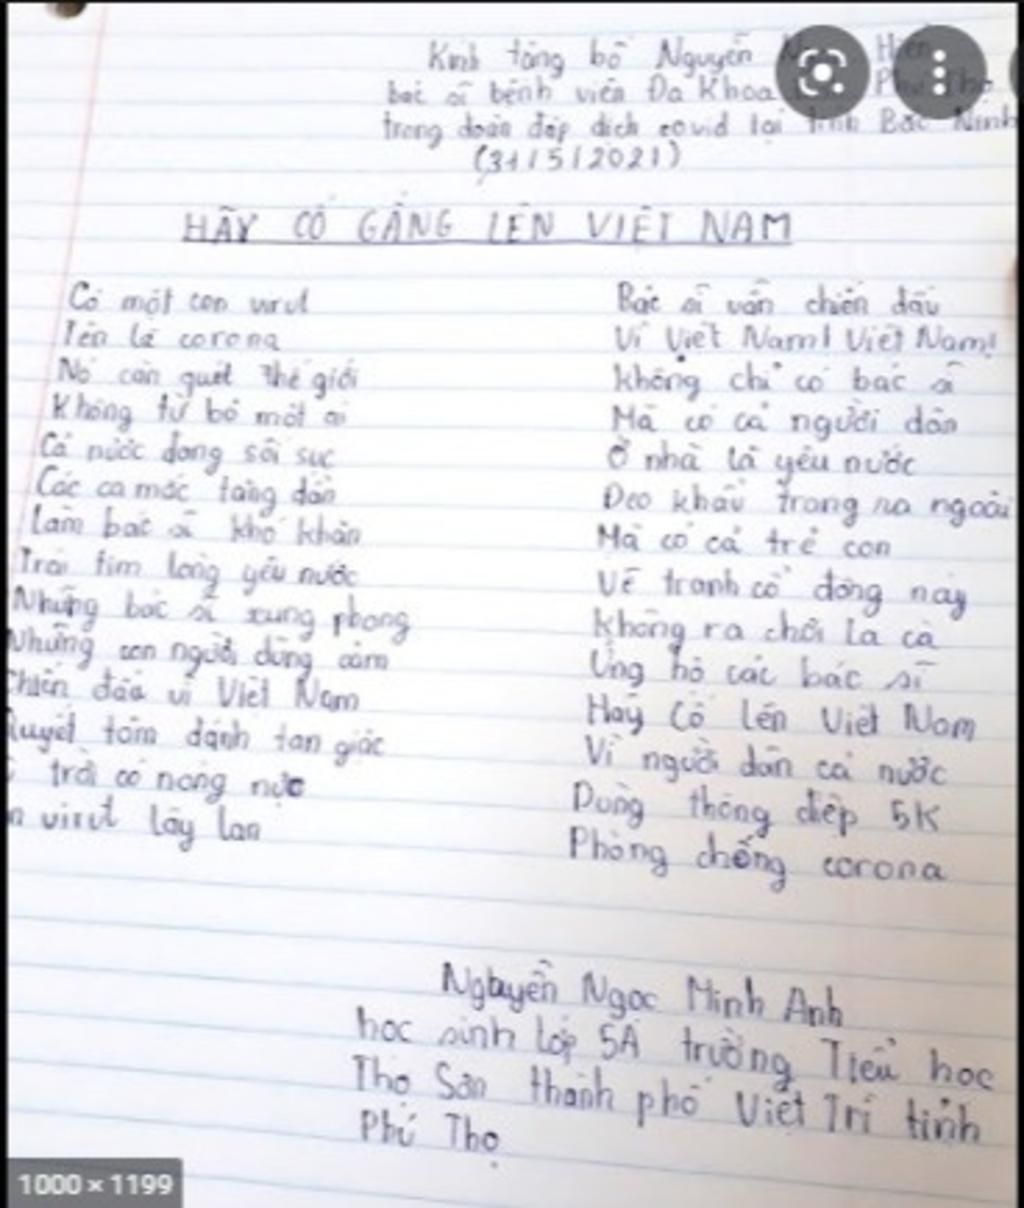 Kính tặng bố Nguyễn
bác sĩ bệnh viện Đa Khoa
trong đoàn dập dịch covid tại tỉnh Bắc Ninh
(31/5/2021)
HÃY CỐ GẮNG LÊN VIỆT NAM
Có một con virut
Tên là corona
Nó càn quét thế giới
Không từ bỏ một ai
Cả nước đang sôi sục
Các ca mắc tăng dần
Làm bác sĩ khó khăn
Trái tim lòng yêu nước
Những bác sĩ xung phong
Những con người dũng cảm
Chiến đấu vì Việt Nam
Quyết tâm đánh tan giặc
trời có nóng nực
virut lây lan
Bác sĩ vẫn chiến đấu
Vì Việt Nam! Việt Nam!
Không chỉ có bác sĩ
Mà có cả người dân
Ở nhà là yêu nước
Đeo khẩu trang ra ngoài
Mà có cả trẻ con
Vẽ tranh cổ động này
Không ra chơi la cà
Ủng hộ các bác sĩ
Hãy cố lên Việt Nam
Vì người dân cả nước
Dùng thông điệp 5K
Phòng chống corona
Nguyễn Ngọc Minh Anh
học sinh lớp 5A trường Tiểu học
Thọ Sơn thành phố Việt Trì tỉnh
Phú Thọ
1000 × 1199